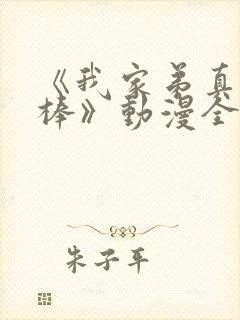 《我家弟真
棒》動漫全
朱子平